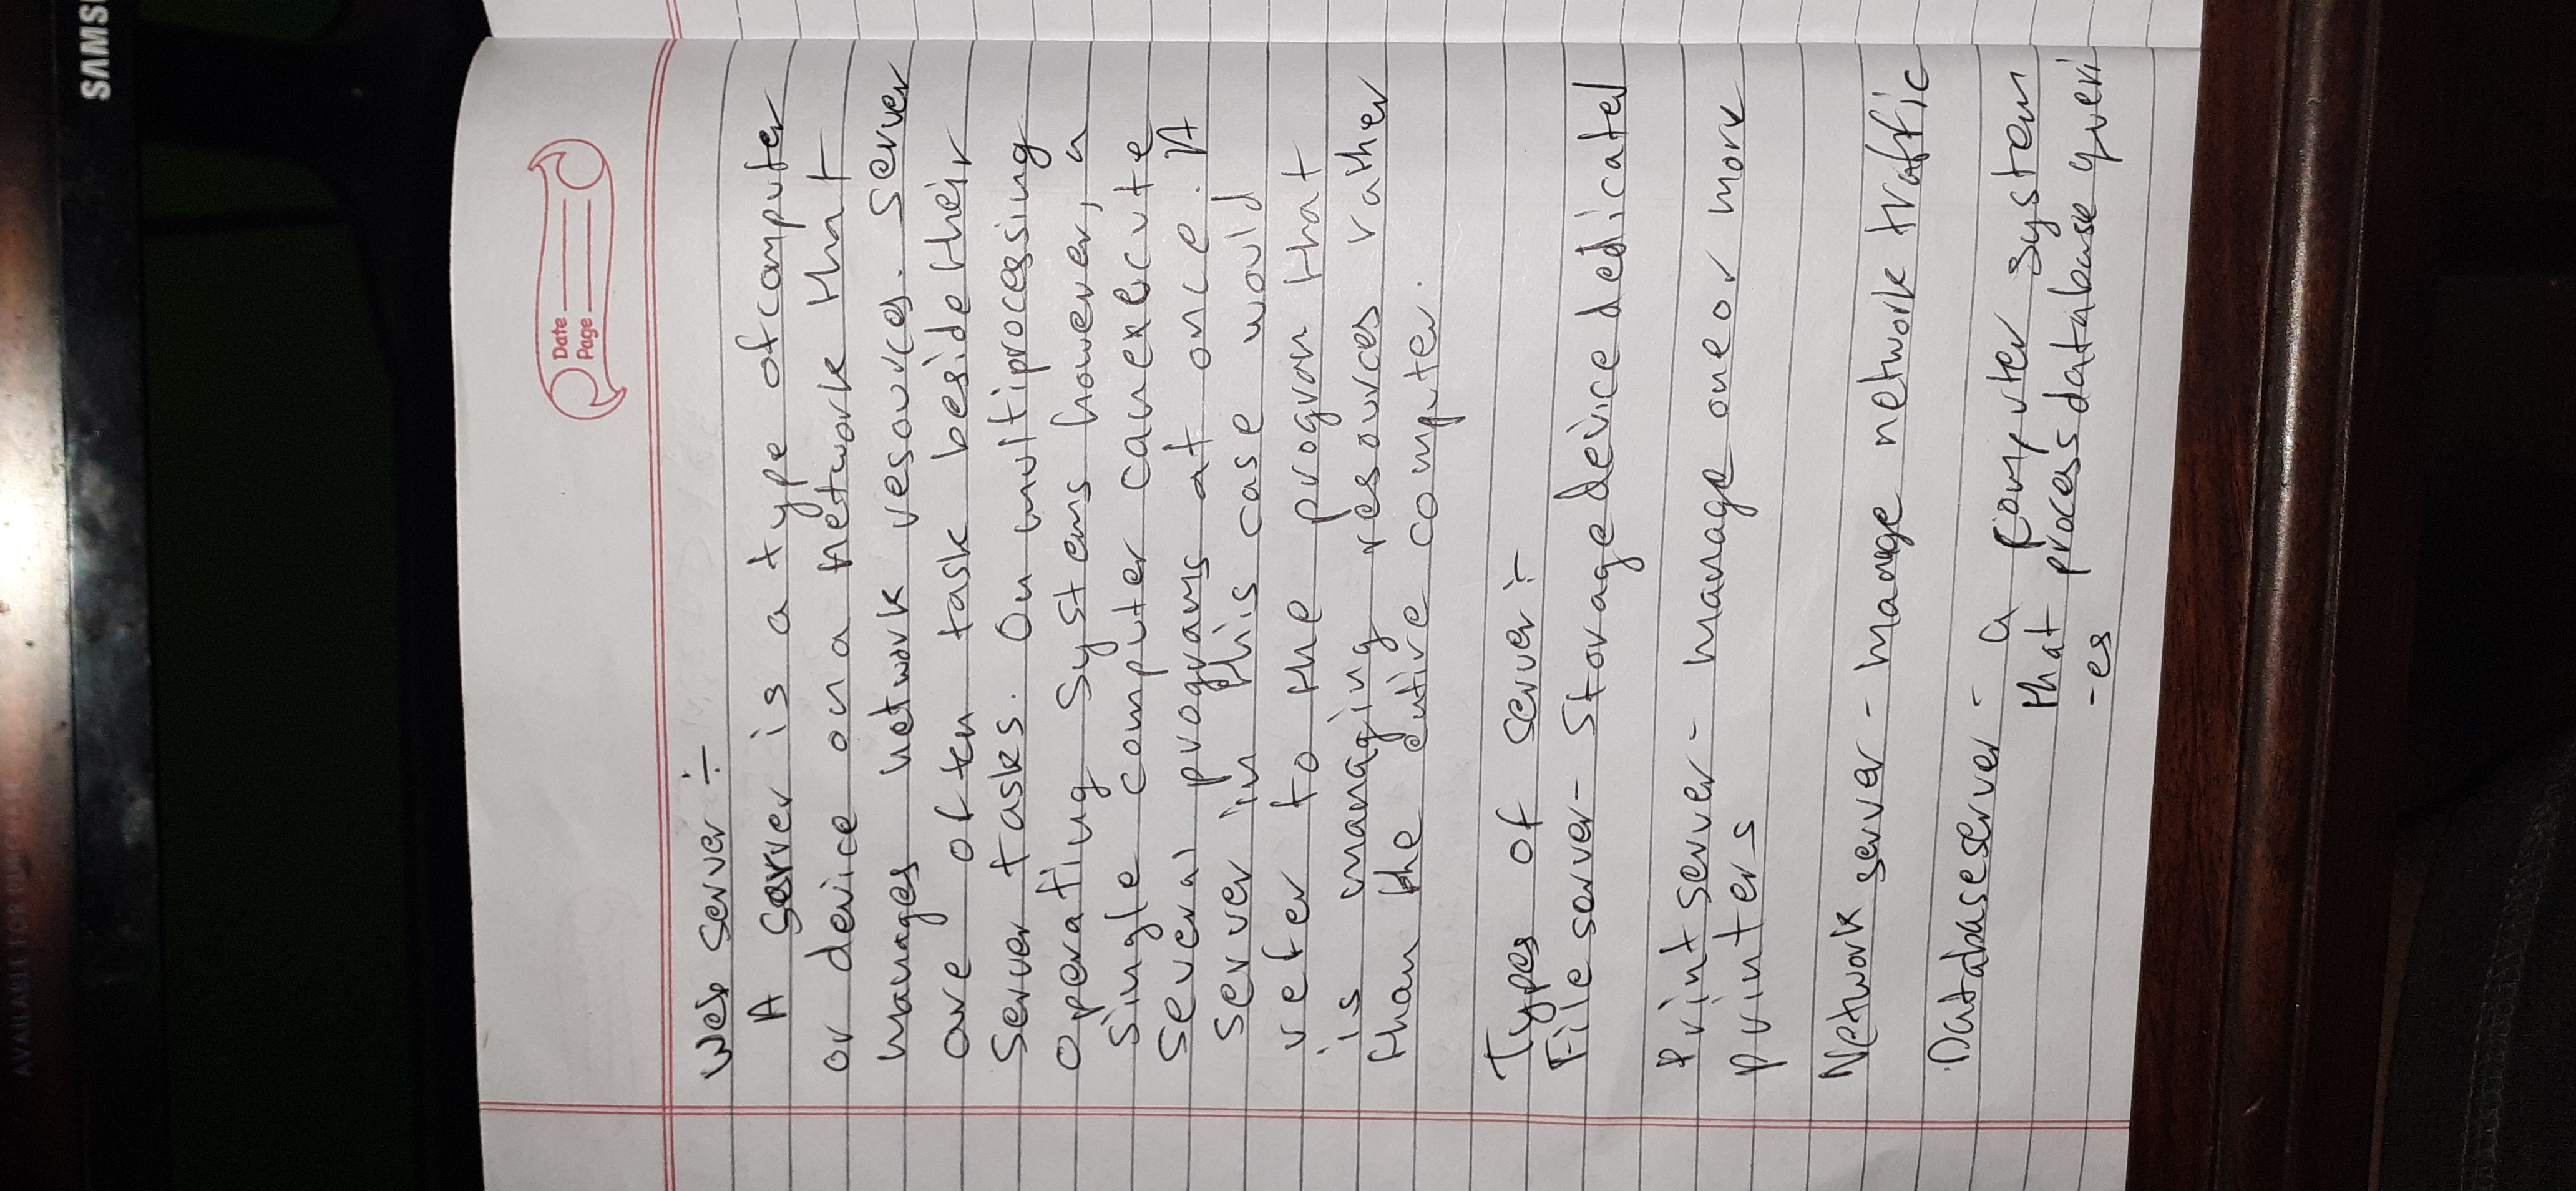 AVAILABLE FOR PURCHASE
SAMS
Date
Page
Web server ÷
A server is a type of computer
or device on a network that
manages network resources. Server
are often task beside their
Server tasks. On multiprocessing
operating systems however, a
single computer can execute
several programs at once. A
server in this case would
refer to the program that
is managing resources rather
than the entire computer.
Types of server :-
File server - Storage device dedicated
Print server - manage one or more
printers
Network server - manage network traffic
Database server - a computer system
that process database queri
-es